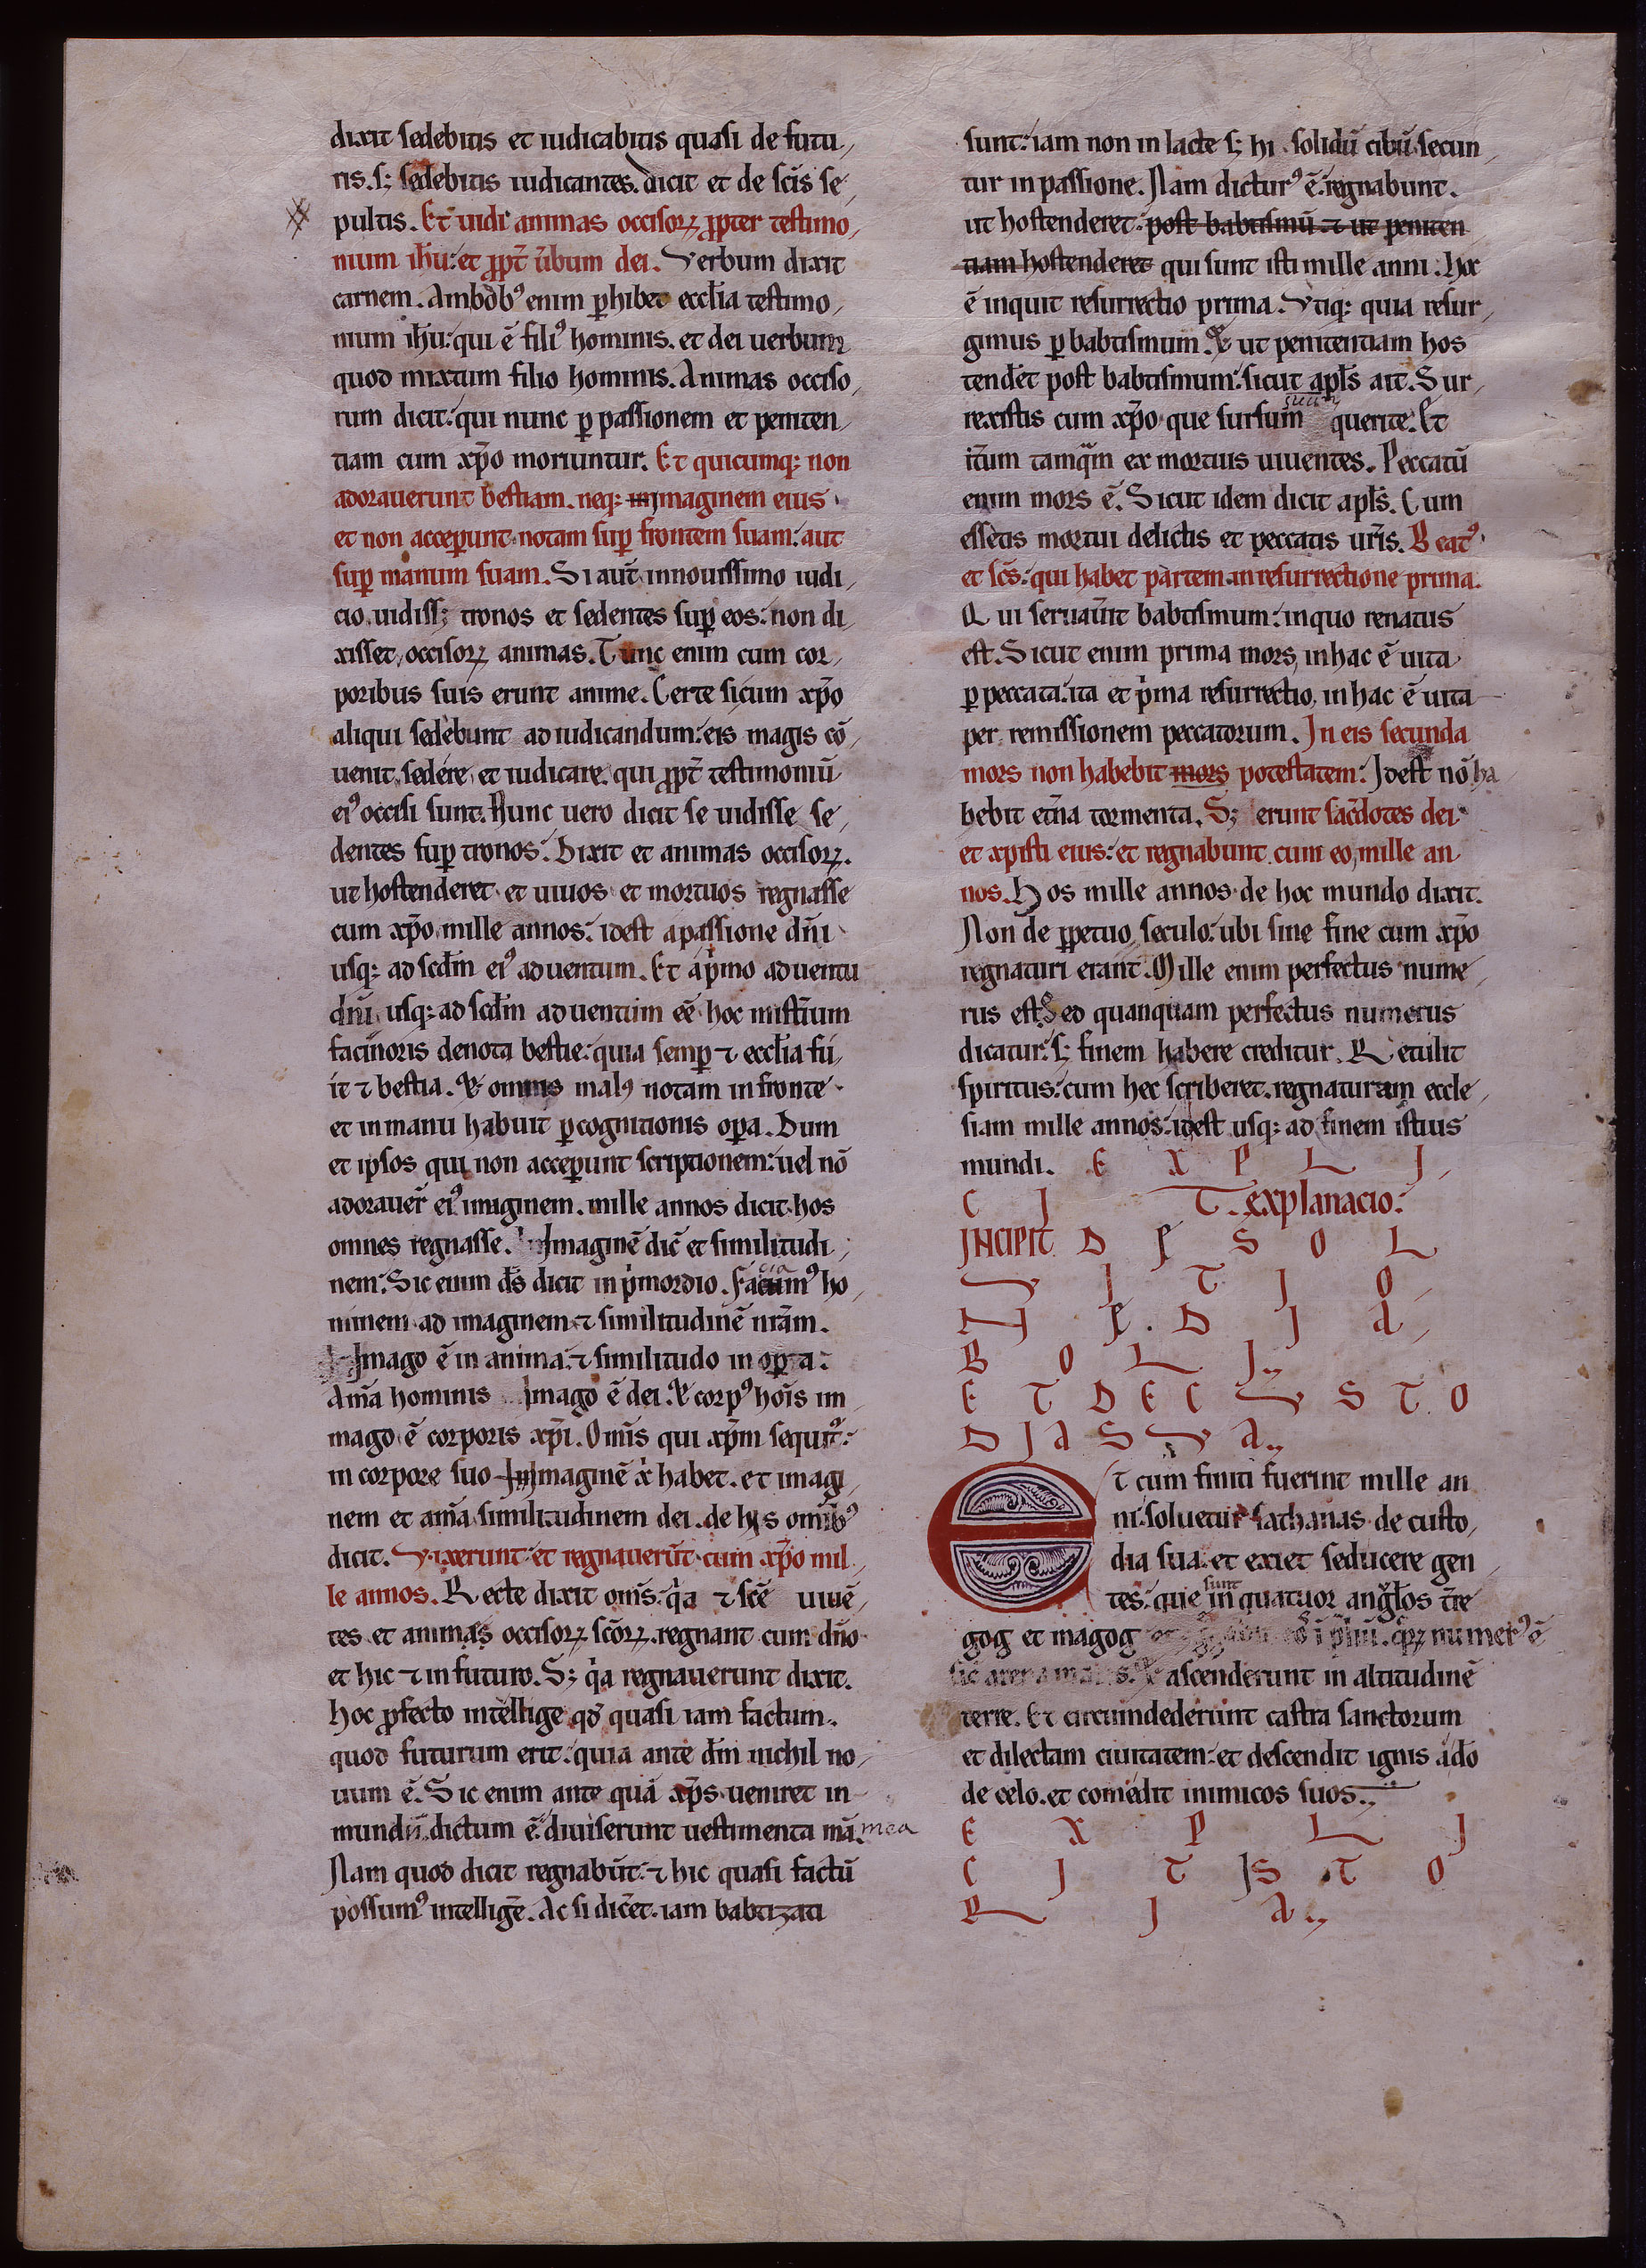 dixit sedebitis et iudicabitis quasi de futu,
ris. s; sedebitis iudicantes. dicit et de scīs se,
pultis. Et uidi animas occisoꝝ ꝓpter testimo,
nium ihū: et ꝓpt̄ ūbum dei. Verbum dixit
carnem. Ambobꝰ enim ꝑhibet eccl̄ia testimo,
nium ihū: qui ē filiꝰ hominis. et dei uerbum
quod mixtum filio hominis. Animas occiso,
rum dicit: qui nunc ꝑ passionem et peniten,
tiam cum xp̄o moriuntur. Et quicumqꝫ non
adorauerunt bestiam. neqꝫ imaginem eius
et non acceperunt notam suꝑ frontem suam: aut
suꝑ manum suam. Si aut̄ in nouissimo iudi,
cio uidissꝫ tronos et sedentes suꝑ eos: non di,
xisset occisoꝝ animas. Tunc enim cum cor,
poribus suis erunt anime. Certe si cum xp̄o
aliqui sedebunt ad iudicandum: eis magis cō,
uenit sedere et iudicare. qui ꝓpt̄ testimoniū
eiꝰ occisi sunt. Nunc uero dicit se uidisse se,
dentes suꝑ tronos. Dixit et animas occisoꝝ.
ut hostenderet et uiuos et mortuos regnasse
cum xp̄o mille annos: idest a passione dn̄i
usqꝫ ad scd̄m eiꝰ aduentum. Et a pͥmo aduentu
dn̄i usqꝫ ad scd̄m aduentum eē hoc mist̄ium
facinoris denota bestie: quia semꝑ ⁊ eccl̄ia fu,
it ⁊ bestia. & omnis malꝰ notam in fronte
et in manu habuit ꝑ cognitionis oꝑa. Dum
et ipsos qui non acceꝑunt scriptionem: uel nō
adorauer̄ eiꝰ imaginem. mille annos dicit hos
omnes regnasse. Imaginē dic̄ et similitudi,
nem: Sic enim d̄s dicit in pͥmordio. faciamꝰ ho,
minem ad imaginem ⁊ similitudinē nr̄am.
Imago ē in anima: ⁊ similitudo in oꝑa:
Am̄a hominis imago ē dei. & corpꝰ hoīs im
mago ē corporis xp̄i. Om̄is qui xp̄m sequitꝰ:
in corpore suo imaginē x̄ habet. et imagi,
nem et am̄a similitudinem dei. de hijs omībꝰ
dicit. Vixerunt: et regnauerūt cum xp̄o mil,
le annos. Recte dixit om̄s: qͥa ⁊ scē uiuē,
tes et animas occisoꝝ scōꝝ. regnant cum dn̄o
et hic ⁊ in futuro. Sꝫ qͥa regnauerunt dixit.
hoc ꝓfecto intellige qd̄ quasi iam factum.
quod futurum erit: quia ante dm̄ nichil no,
uum ē. Sic enim ante quā xp̄s ueniret in
mundū. dictum ē: diuiserunt uestimenta mā. mea
Nam quod dicit regnabūt: ⁊ hic quasi factū
possumꝰ intelligē. Ac si dic̄et. iam babtizati
sunt: iam non in lacte sꝫ hi solidū cibū secun,
tur in passione. Nam dicturꝰ ē: regnabunt.
ut hostenderet: post babtismū ⁊ ut peniten
tiam hostenderet qui sunt isti mille anni. Hoc
ē inquit resurrectio prima. Vtiqꝫ quia resur,
gimus ꝑ babtismum. & ut penitentiam hos
tendēt post babtismum: sicut apl̄s ait. Sur,
rexistis cum xp̄o que sursum sunt querite. Et
it̄um tamqͣm ex mortuis uiuentes. Peccatū
enim mors ē. Sicut idem dicit apl̄s. Cum
essetis mortui delictis et peccatis ur̄is. Beatꝰ
et sc̄s: qui habet partem in resurrectione prima.
Qui seruaūit babtismum: in quo renatus
est. Sicut enim prima mors, in hac ē uita
ꝑ peccata: ita et pͥma resurrectio, in hac ē uita
per remissionem peccatorum. In eis secunda
mors non habebit mors potestatem: Idest nō ha
bebit et̄na tormenta. Sꝫ erunt sac̄dotes dei
et xpisti eius: et regnabunt cum eo, mille an
nos. Hos mille annos de hoc mundo dixit.
Non de ꝑpetuo seculo: ubi sine fine cum xp̄o
regnaturi erant. Mille enim perfectus nume,
rus est. Sed quanquam perfectus numerus
dicatur: sꝫ finem habere creditur. Retulit
spiritus: cum hec scriberet. regnaturam eccle,
siam mille annos: idest usqꝫ ad finem istius
mundi. E X P L I,
C I T. explanacio:
INCIPIT D E S O L
V T I O,
N E. D I A,
B O L I.,
E T D E C V S T O
D I A S V A.,
Et cum finiti fuerint mille an
ni: soluetur sathanas de custo,
dia sua: et exiet seducere gen,
tes: que sunt in quatuor angl̄os t̄re
gog et magog qͦꝝ numerꝰ ē
sic arena maris. & ascenderunt in altitudinē
terre. Et circumdederunt castra sanctorum
et dilectam ciuitatem: et descendit ignis a do
de celo. et comedit inimicos suos.,
E X P L I
C I T IS T O
R I A.,